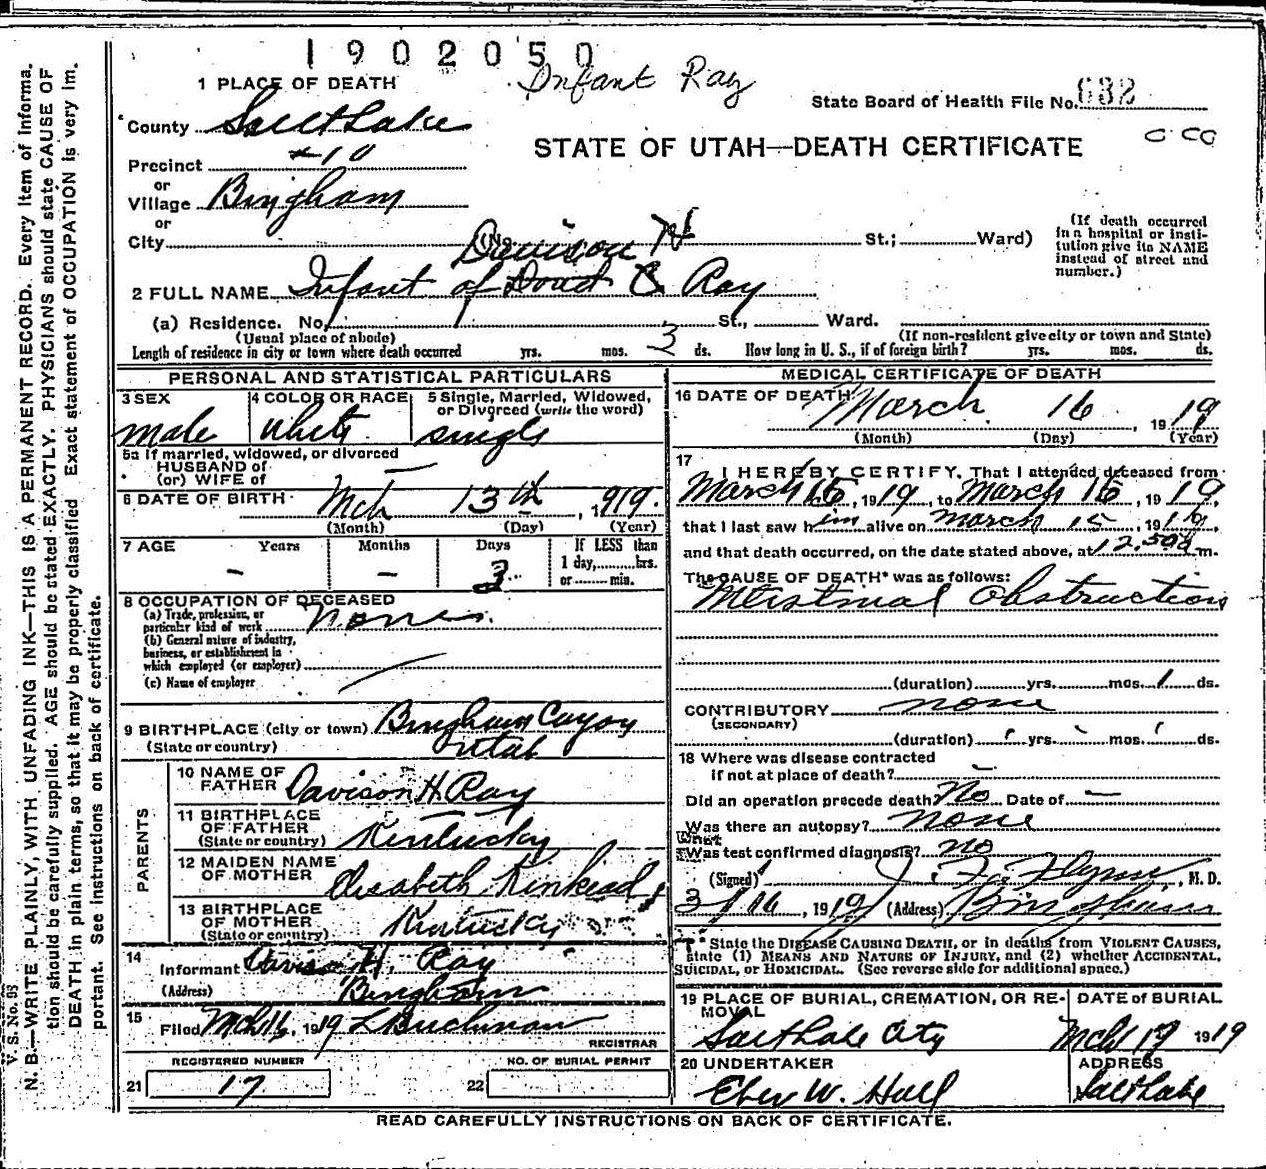 1902050
Infant Ray
1 PLACE OF DEATH
State Board of Health File No. 632
County Salt Lake
STATE OF UTAH—DEATH CERTIFICATE
Precinct #10
or
Village Bingham
or
City (No. St.; Ward)
Davison H
(If death occurred in a hospital or institution give its NAME instead of street and number.)
2 FULL NAME Infant of & Ray
(a) Residence. No. St., Ward.
(Usual place of abode) (If non-resident give city or town and State)
Length of residence in city or town where death occurred yrs. mos. 3 ds. How long in U. S., if of foreign birth? yrs. mos. ds.
PERSONAL AND STATISTICAL PARTICULARS
3 SEX
male
4 COLOR OR RACE
White
5 Single, Married, Widowed, or Divorced (write the word)
single
5a If married, widowed, or divorced
HUSBAND of
(or) WIFE of
6 DATE OF BIRTH Mch 13th, 1919.
(Month) (Day) (Year)
7 AGE Years Months Days If LESS than
1 day,......hrs.
or ...... min.
– – 3
8 OCCUPATION OF DECEASED
(a) Trade, profession, or
particular kind of work None
(b) General nature of industry,
business, or establishment in
which employed (or employer)
(c) Name of employer
9 BIRTHPLACE (city or town) Bingham Canyon
(State or country) Utah
PARENTS
10 NAME OF FATHER Davison H. Ray
11 BIRTHPLACE OF FATHER
(State or country) Kentucky
12 MAIDEN NAME OF MOTHER Elisabeth Kinkead
13 BIRTHPLACE OF MOTHER
(State or country) Kentucky
14
Informant Davison H. Ray
(Address) Bingham
15
Filed Mch 16, 1919 L Buchman
REGISTRAR
REGISTERED NUMBER
21 17
NO. OF BURIAL PERMIT
22
MEDICAL CERTIFICATE OF DEATH
16 DATE OF DEATH March 16, 1919
(Month) (Day) (Year)
17
I HEREBY CERTIFY, That I attended deceased from
March 15, 1919, to March 16, 1919,
that I last saw him alive on March 15, 1919,
and that death occurred, on the date stated above, at 12.50a m.
The CAUSE OF DEATH* was as follows:
Obstruction
(duration) yrs. mos. 1 ds.
CONTRIBUTORY none
(SECONDARY)
(duration) yrs. mos. ds.
18 Where was disease contracted
if not at place of death? –
Did an operation precede death? No Date of –
Was there an autopsy? none
What
Was test confirmed diagnosis? no
(Signed) F. Flynn, M. D.
3/16, 1919 (Address) Bingham
* State the DISEASE CAUSING DEATH, or in deaths from VIOLENT CAUSES, state (1) MEANS AND NATURE OF INJURY, and (2) whether ACCIDENTAL, SUICIDAL, or HOMICIDAL. (See reverse side for additional space.)
19 PLACE OF BURIAL, CREMATION, OR REMOVAL
Salt Lake City
DATE of BURIAL
Mch 19 1919
20 UNDERTAKER
Eber W. Hall
ADDRESS
Salt Lake
READ CAREFULLY INSTRUCTIONS ON BACK OF CERTIFICATE.
V. S. No. 93
N. B.—WRITE PLAINLY, WITH UNFADING INK—THIS IS A PERMANENT RECORD. Every Item of Informa-
tion should be carefully supplied. AGE should be stated EXACTLY. PHYSICIANS should state CAUSE OF
DEATH in plain terms, so that it may be properly classified Exact statement of OCCUPATION is very im-
portant. See instructions on back of certificate.